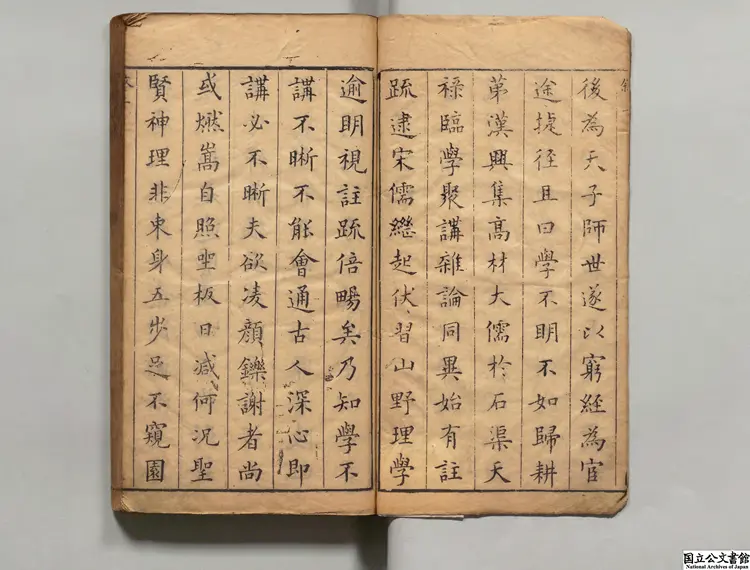 後為天子師世遂以窮經為宦
途㨗徑且曰學不明不如歸耕
苐漢興集髙材大儒於石渠天
祿臨學聚講雜論同異始有註
疏逮宋儒繼起伏習山野理學
逾明視註疏倍暢矣乃知學不
講不晰不能會通古人深心即
講必不晰夫欲凌顔鑠謝者尚
或燃嵩自照坐板日減何况聖
賢神理非束身五步足不窺園
国立公文書館
National Archives of Japan